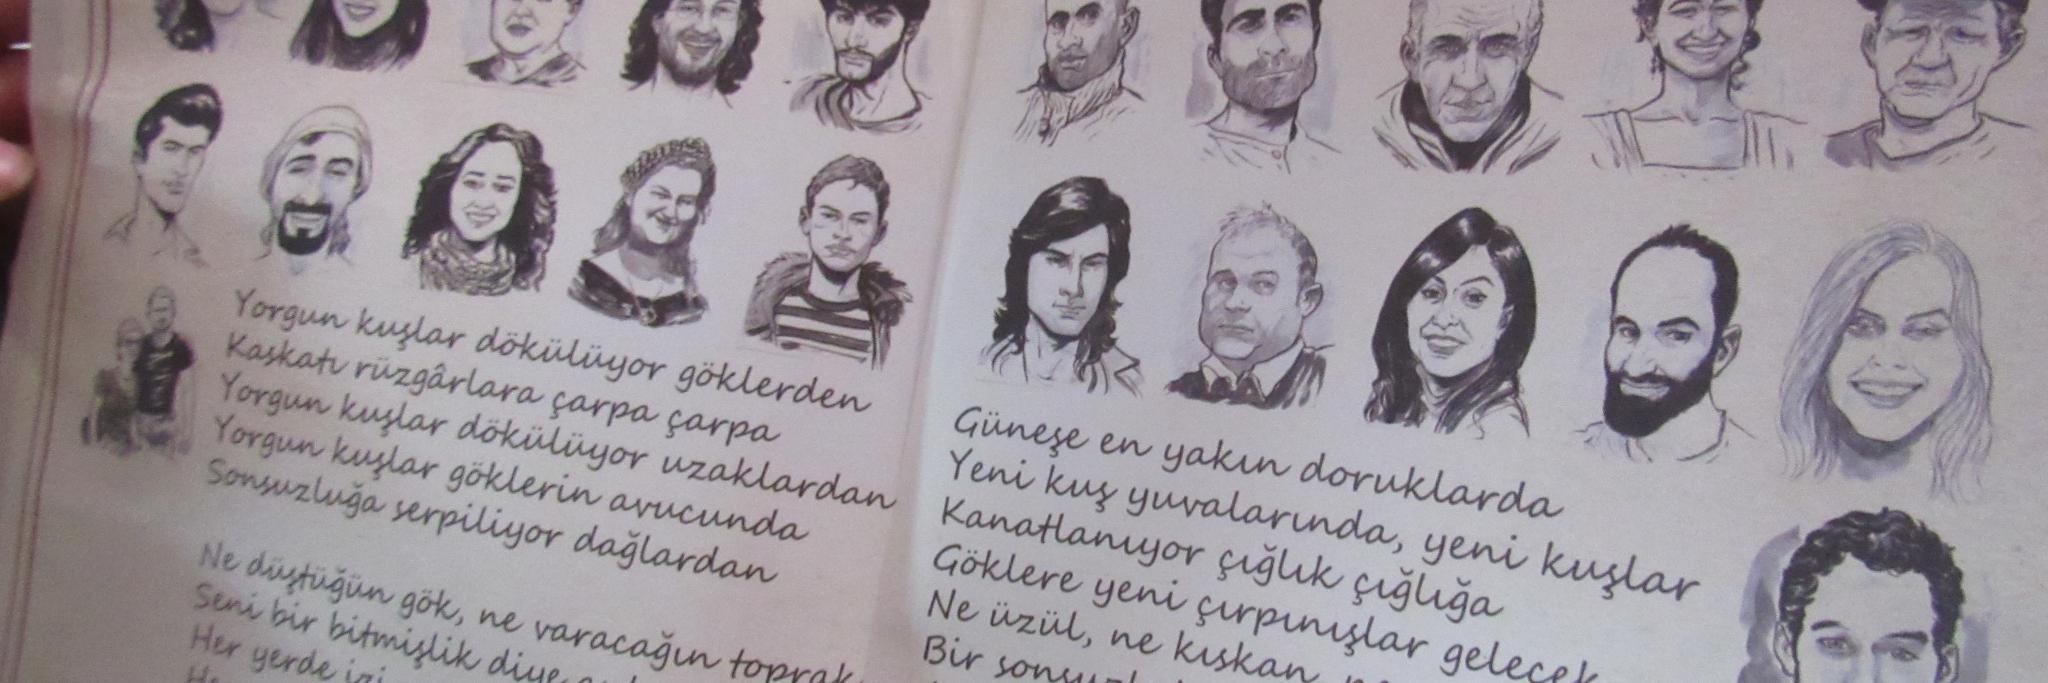 Yorgun kuşlar dökülüyor göklerden
Kaskatı rüzgârlara çarpa çarpa
Yorgun kuşlar dökülüyor uzaklardan
Yorgun kuşlar göklerin avucunda
Sonsuzluğa serpiliyor dağlardan
Ne düştüğün gök, ne varacağın toprak
Seni bir bitmişlik diye
Her yerde izi
Güneşe en yakın doruklarda
Yeni kuş yuvalarında, yeni kuşlar
Kanatlanıyor çığlık çığlığa
Göklere yeni çırpınışlar gelecek
Ne üzül, ne kıskan
Bir